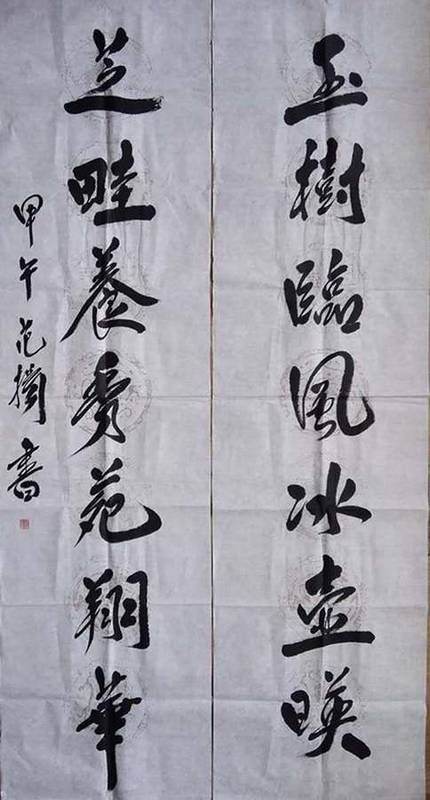 玉樹臨風冰壺暎
芝畦養秀苑翔華
甲午范 書